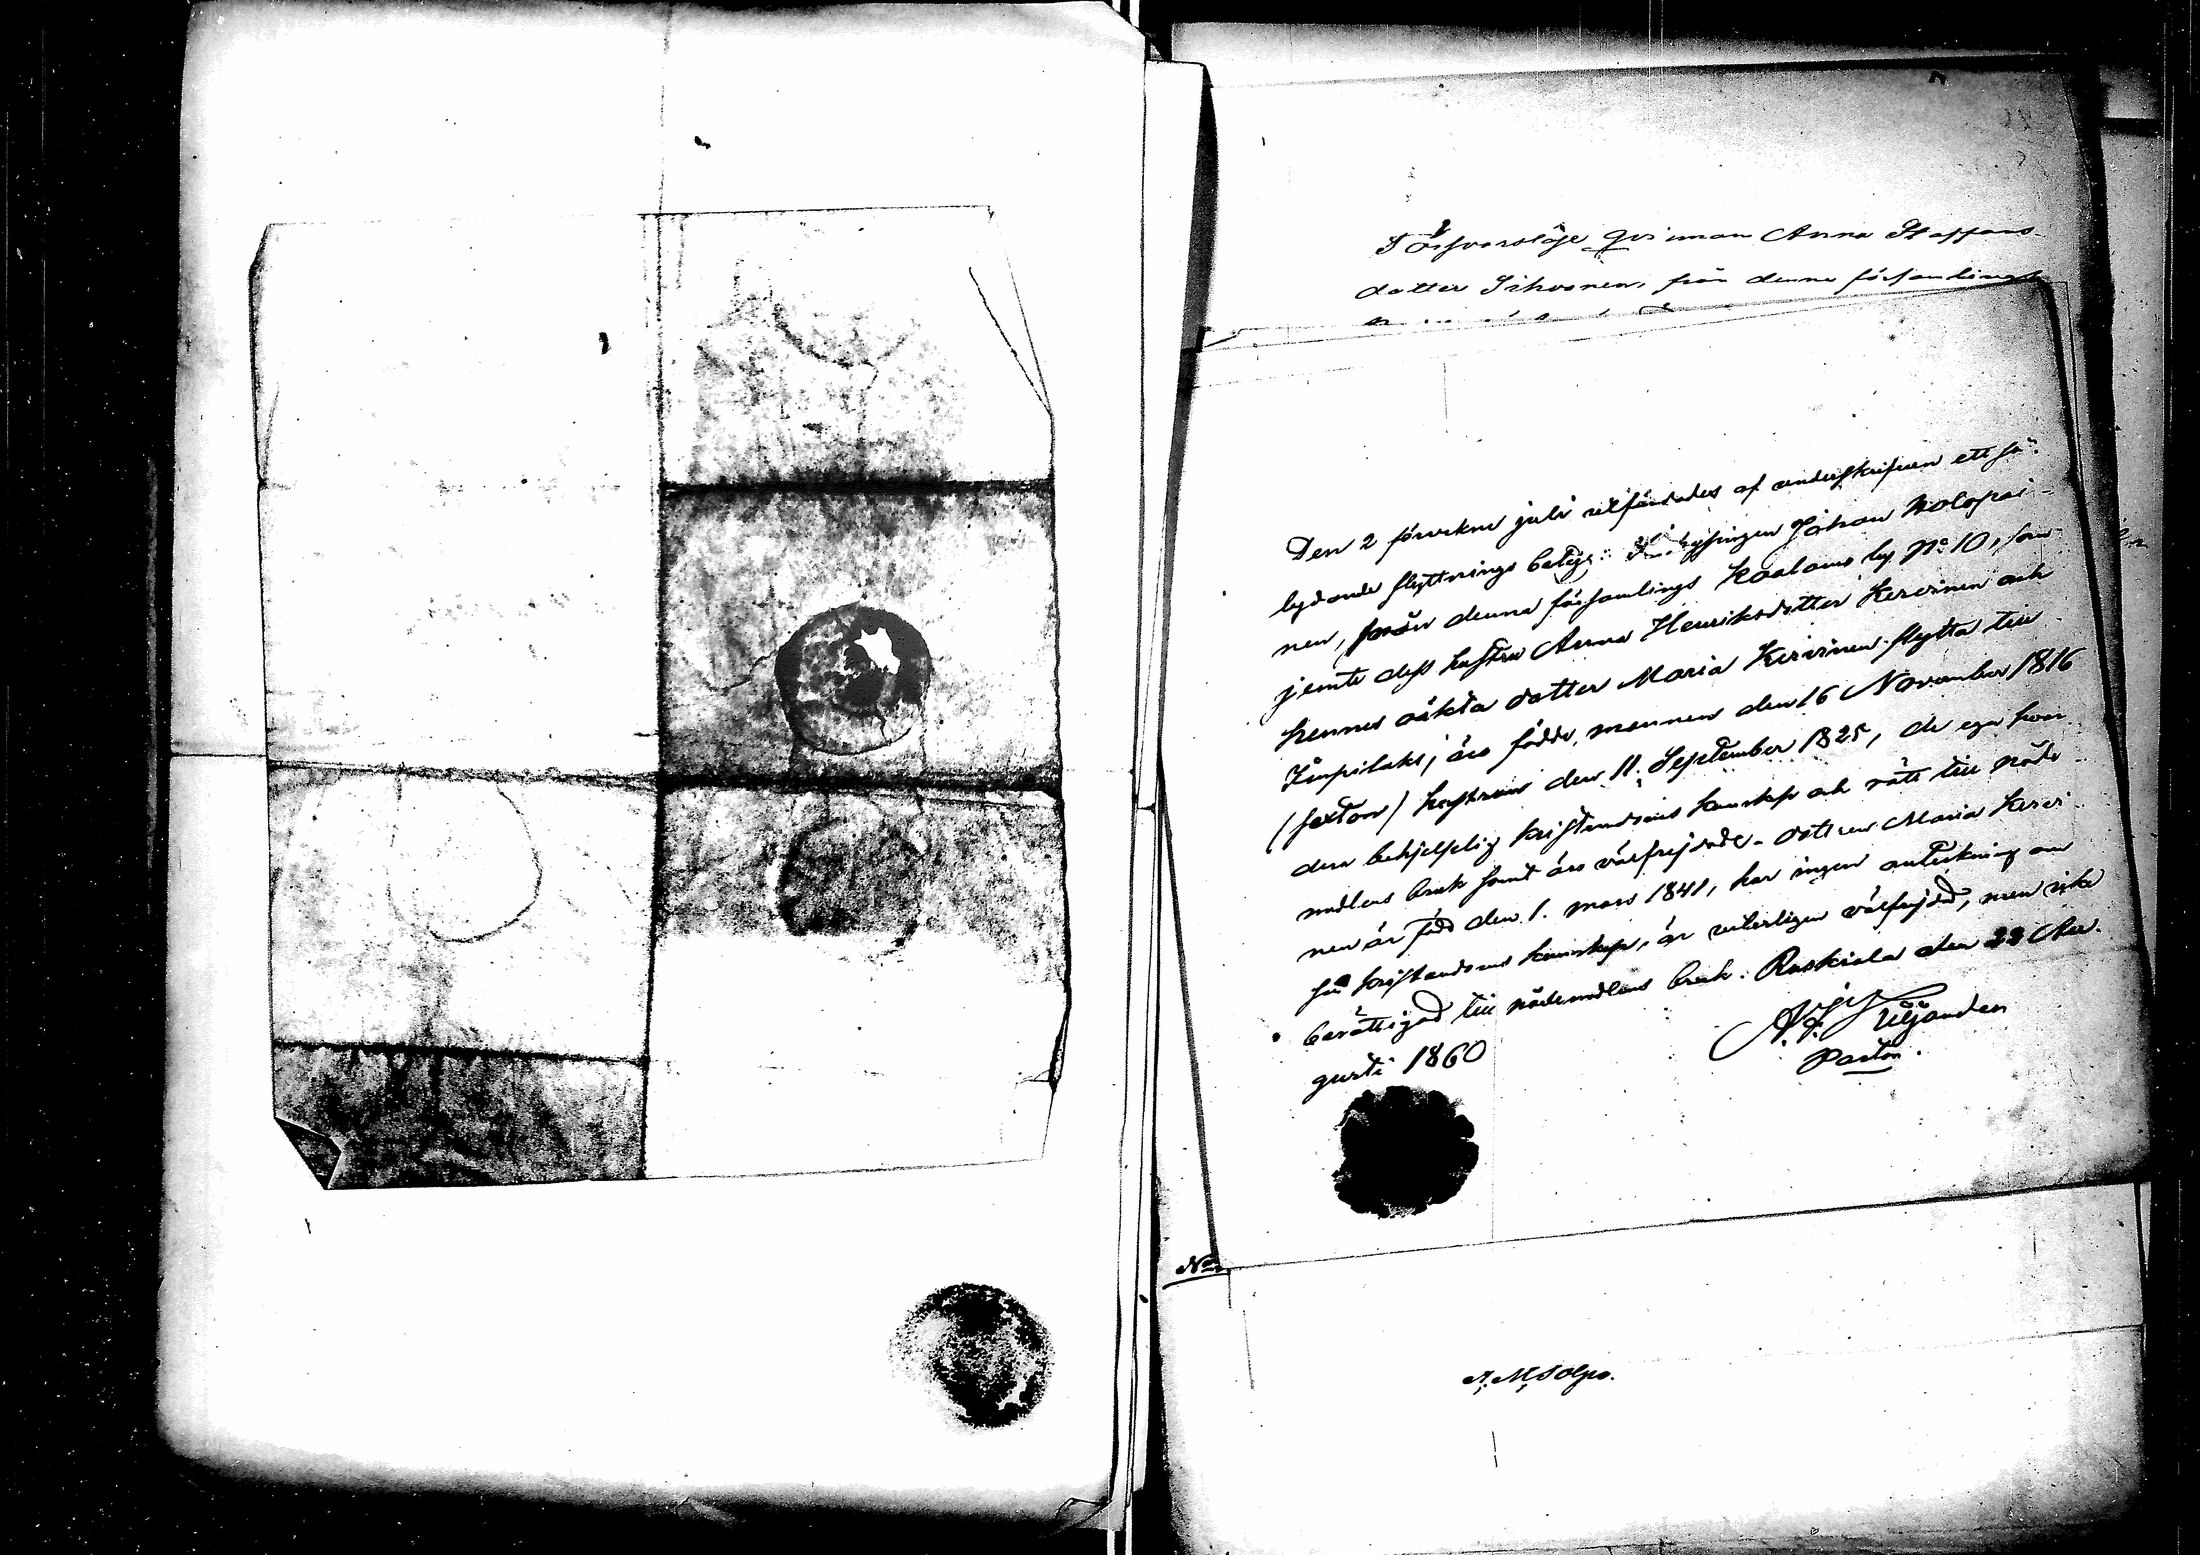 Försvarslöse qvinnan Anna Staffans-
dotter Sihvonen, från denna församlings
Den 2 förvekne juli utfärdades af underskrifven ett så-
lydande flyttnings betyg: Inhysingen Johan Kolopai-
nen, från denna församlings Kaalamo by No 10, som
jemte dess hustru Anna Henriksdotter Kervinen och
hennes oäkta dotter Maria Kervinen flytta till
Impilaks, äro födde, mannen den 16 November 1816
(sexton) hustrun den 11 September 1825, de ega hvar-
dera behjelplig kristendoms kunskap och rätt till nåde-
medlens bruk samt äro välfrejdade. Dottren Maria Kervi-
nen är född den 1. mars 1841, har ingen anteckning om
sin kristendoms kunskap, är veterligen välfrejdad, men icke
berättigad till nådemedlens bruk. Ruskiala den 22 Au-
gusti 1860
Uljanden
Pastor.
No